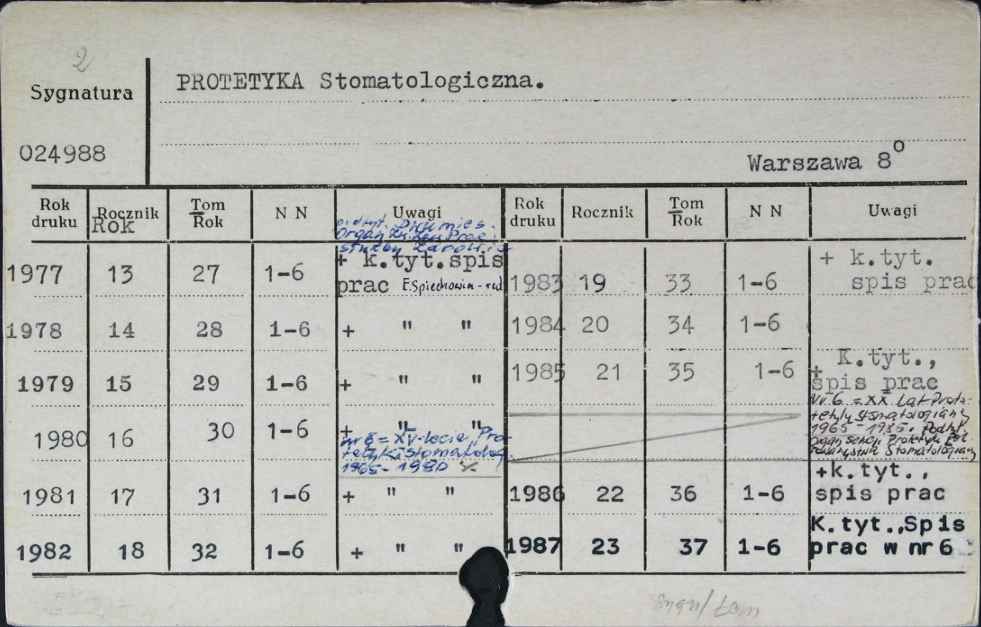 2
PROTETYKA Stomatologiczna.
Sygnatura
024988
Warszawa 8°
Rok druku Rocznik Rok Tom Rok N N Uwagi Rok druku Rocznik Tom Rok N N Uwagi
1977 13 27 1-6 + k.tyt.spis prac 1983 19 33 1-6 + k.tyt. spis prac
1978 14 28 1-6 + " " 1984 20 34 1-6
1979 15 29 1-6 + " " 1985 21 35 1-6 + K.tyt., spis prac
Nr 6 = XX Lat Prote-
tyki Stomatologicznej
1965 - 1985.
1980 16 30 1-6 + " "
nr 6 = XV-lecie "Pro-
tetyki Stomatolog.
1965 - 1980
1981 17 31 1-6 + " " 1986 22 36 1-6 +k.tyt., spis prac
1982 18 32 1-6 + " " 1987 23 37 1-6 K.tyt.,Spis prac w nr 6